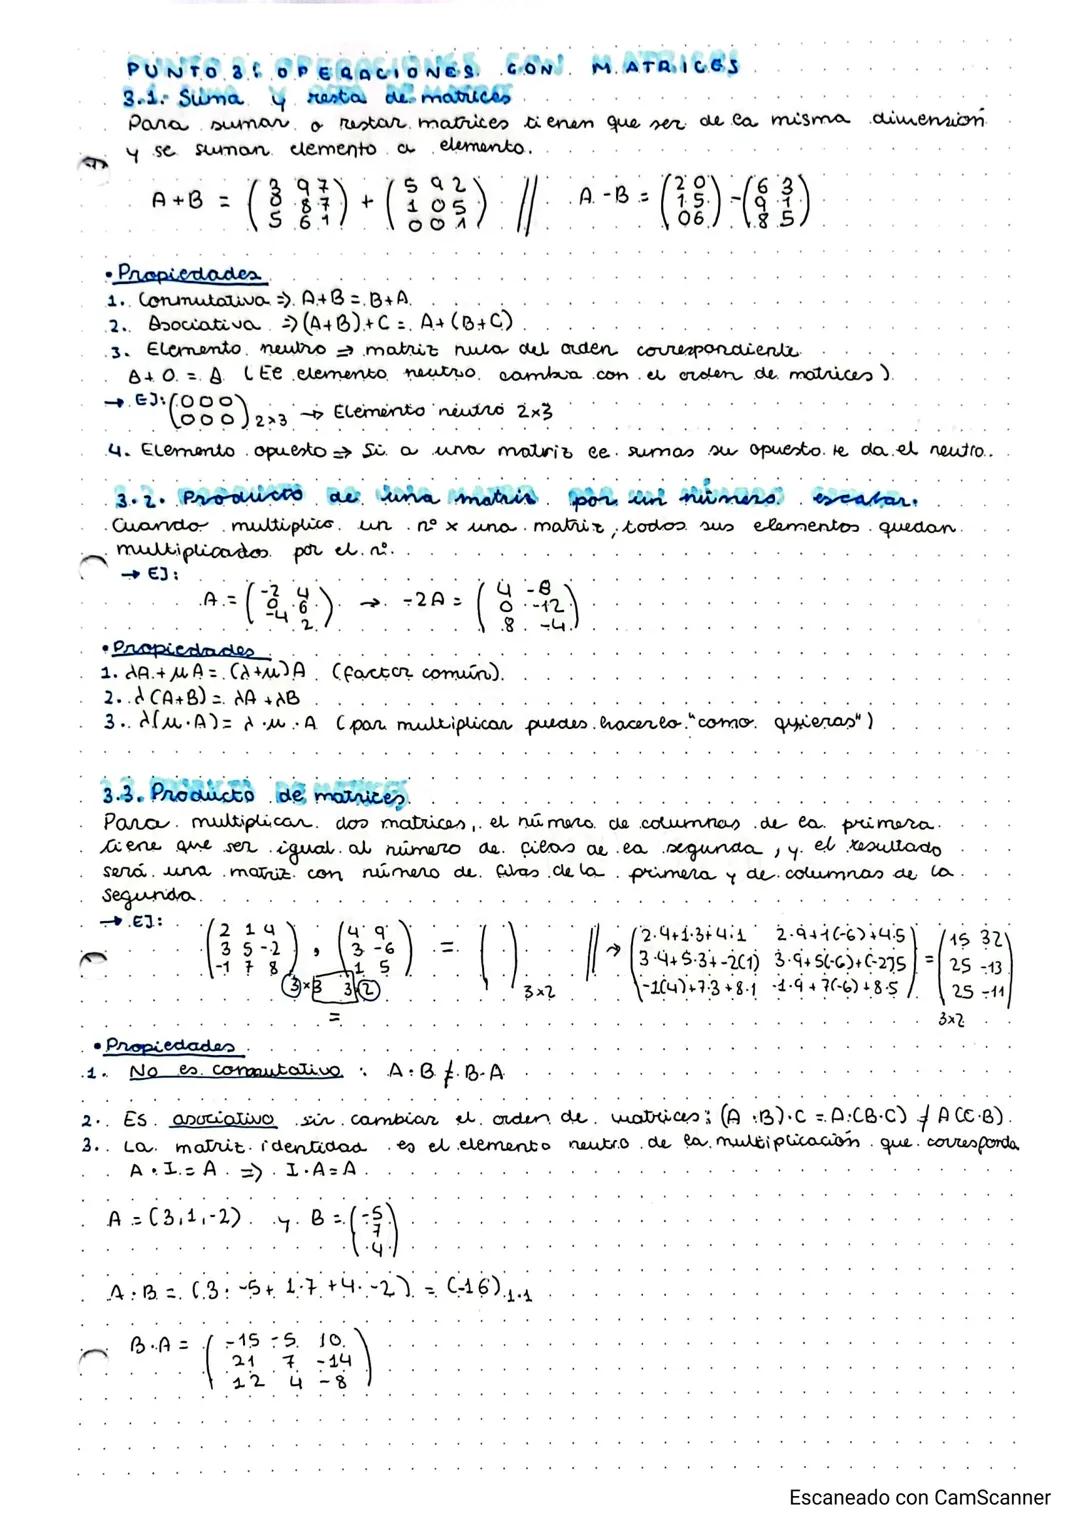 PUNTO 3: OPERACIONES CON MATRICES
3.1. Suma y resta de matrices
Para sumar o restar matrices tienen que ser de la misma dimensión
y se suman elemento a elemento.
A+B = (3 9 7 / 0 8 7 / 5 6 1) + (5 9 2 / 1 0 5 / 0 0 1) // A-B = (2 0 / 1 5 / 0 6) - (6 3 / 9 1 / 8 5)
• Propiedades
1. Conmutativa => A+B = B+A
2. Asociativa => (A+B)+C = A+(B+C)
3. Elemento neutro => matriz nula del orden correspondiente
A+0 = A (El elemento neutro cambia con el orden de matrices)
→ EJ: (0 0 0 / 0 0 0) 2x3 → Elemento neutro 2x3
4. Elemento opuesto => Si a una matriz le sumas su opuesto te da el neutro.
3.2. Producto de una matriz por un número escalar.
Cuando multiplico un nº x una matriz, todos sus elementos quedan
multiplicados por el nº.
→ EJ:
A = (-2 4 / 0 6 / -4 2) → -2A = (4 -8 / 0 -12 / 8 -4)
• Propiedades
1. λA + μA = (λ+μ)A (factor común)
2. λ(A+B) = λA + λB
3. λ(μ·A) = λ·μ·A (par multiplicar puedes hacerlo "como quieras")
3.3. Producto de matrices
Para multiplicar dos matrices, el número de columnas de la primera
tiene que ser igual al número de filas de la segunda, y el resultado
será una matriz con número de filas de la primera y de columnas de la
segunda.
→ EJ: (2 1 4 / 3 5 -2 / -1 7 8) · (4 9 / 3 -6 / 1 5) = ( ) // → (2·4+1·3+4·1 2·9+1(-6)+4·5 / 3·4+5·3+-2(1) 3·9+5(-6)+(-2)5 / -1(4)+7·3+8·1 -1·9+7(-6)+8·5) = (15 32 / 25 -13 / 25 -11)
3x3 3x2 3x2 3x2
=
• Propiedades
1. No es conmutativo: A·B ≠ B·A
2. Es asociativo sin cambiar el orden de matrices; (A·B)·C = A·(B·C) ≠ A(C·B)
3. La matriz identidad es el elemento neutro de la multiplicación que corresponda
A·I = A => I·A = A
A = (3,1,-2) y B = (-5 / 7 / 4)
A·B = (3·-5+1·7+4·-2) = (-16) 1·1
B·A = (-15 -5 10 / 21 7 -14 / 12 4 -8)
Escaneado con CamScanner